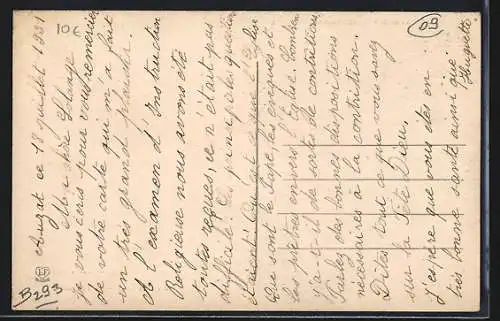 Auzat ce 18 juillet 1931
Ma chère Solange
je vous écris pour vous remercier
de votre carte qui m'a fait
un très grand plaisir.
A l'examen d'Instruction
Religieuse nous avons été
toutes reçues, ce n'était pas
difficile. les questions
étaient: Qu'est-ce que l'Eglise
Que sont le Pape, les évêques et
les prêtres envers l'Eglise. Combien
y a-t-il de sortes de contritions
Parlez des bonnes dispositions
nécessaires à la contrition.
Dites tout ce que vous savez
sur la Fête-Dieu.
J'espère que vous êtes en
très bonne santé ainsi que
Huguette
10€
09
B293